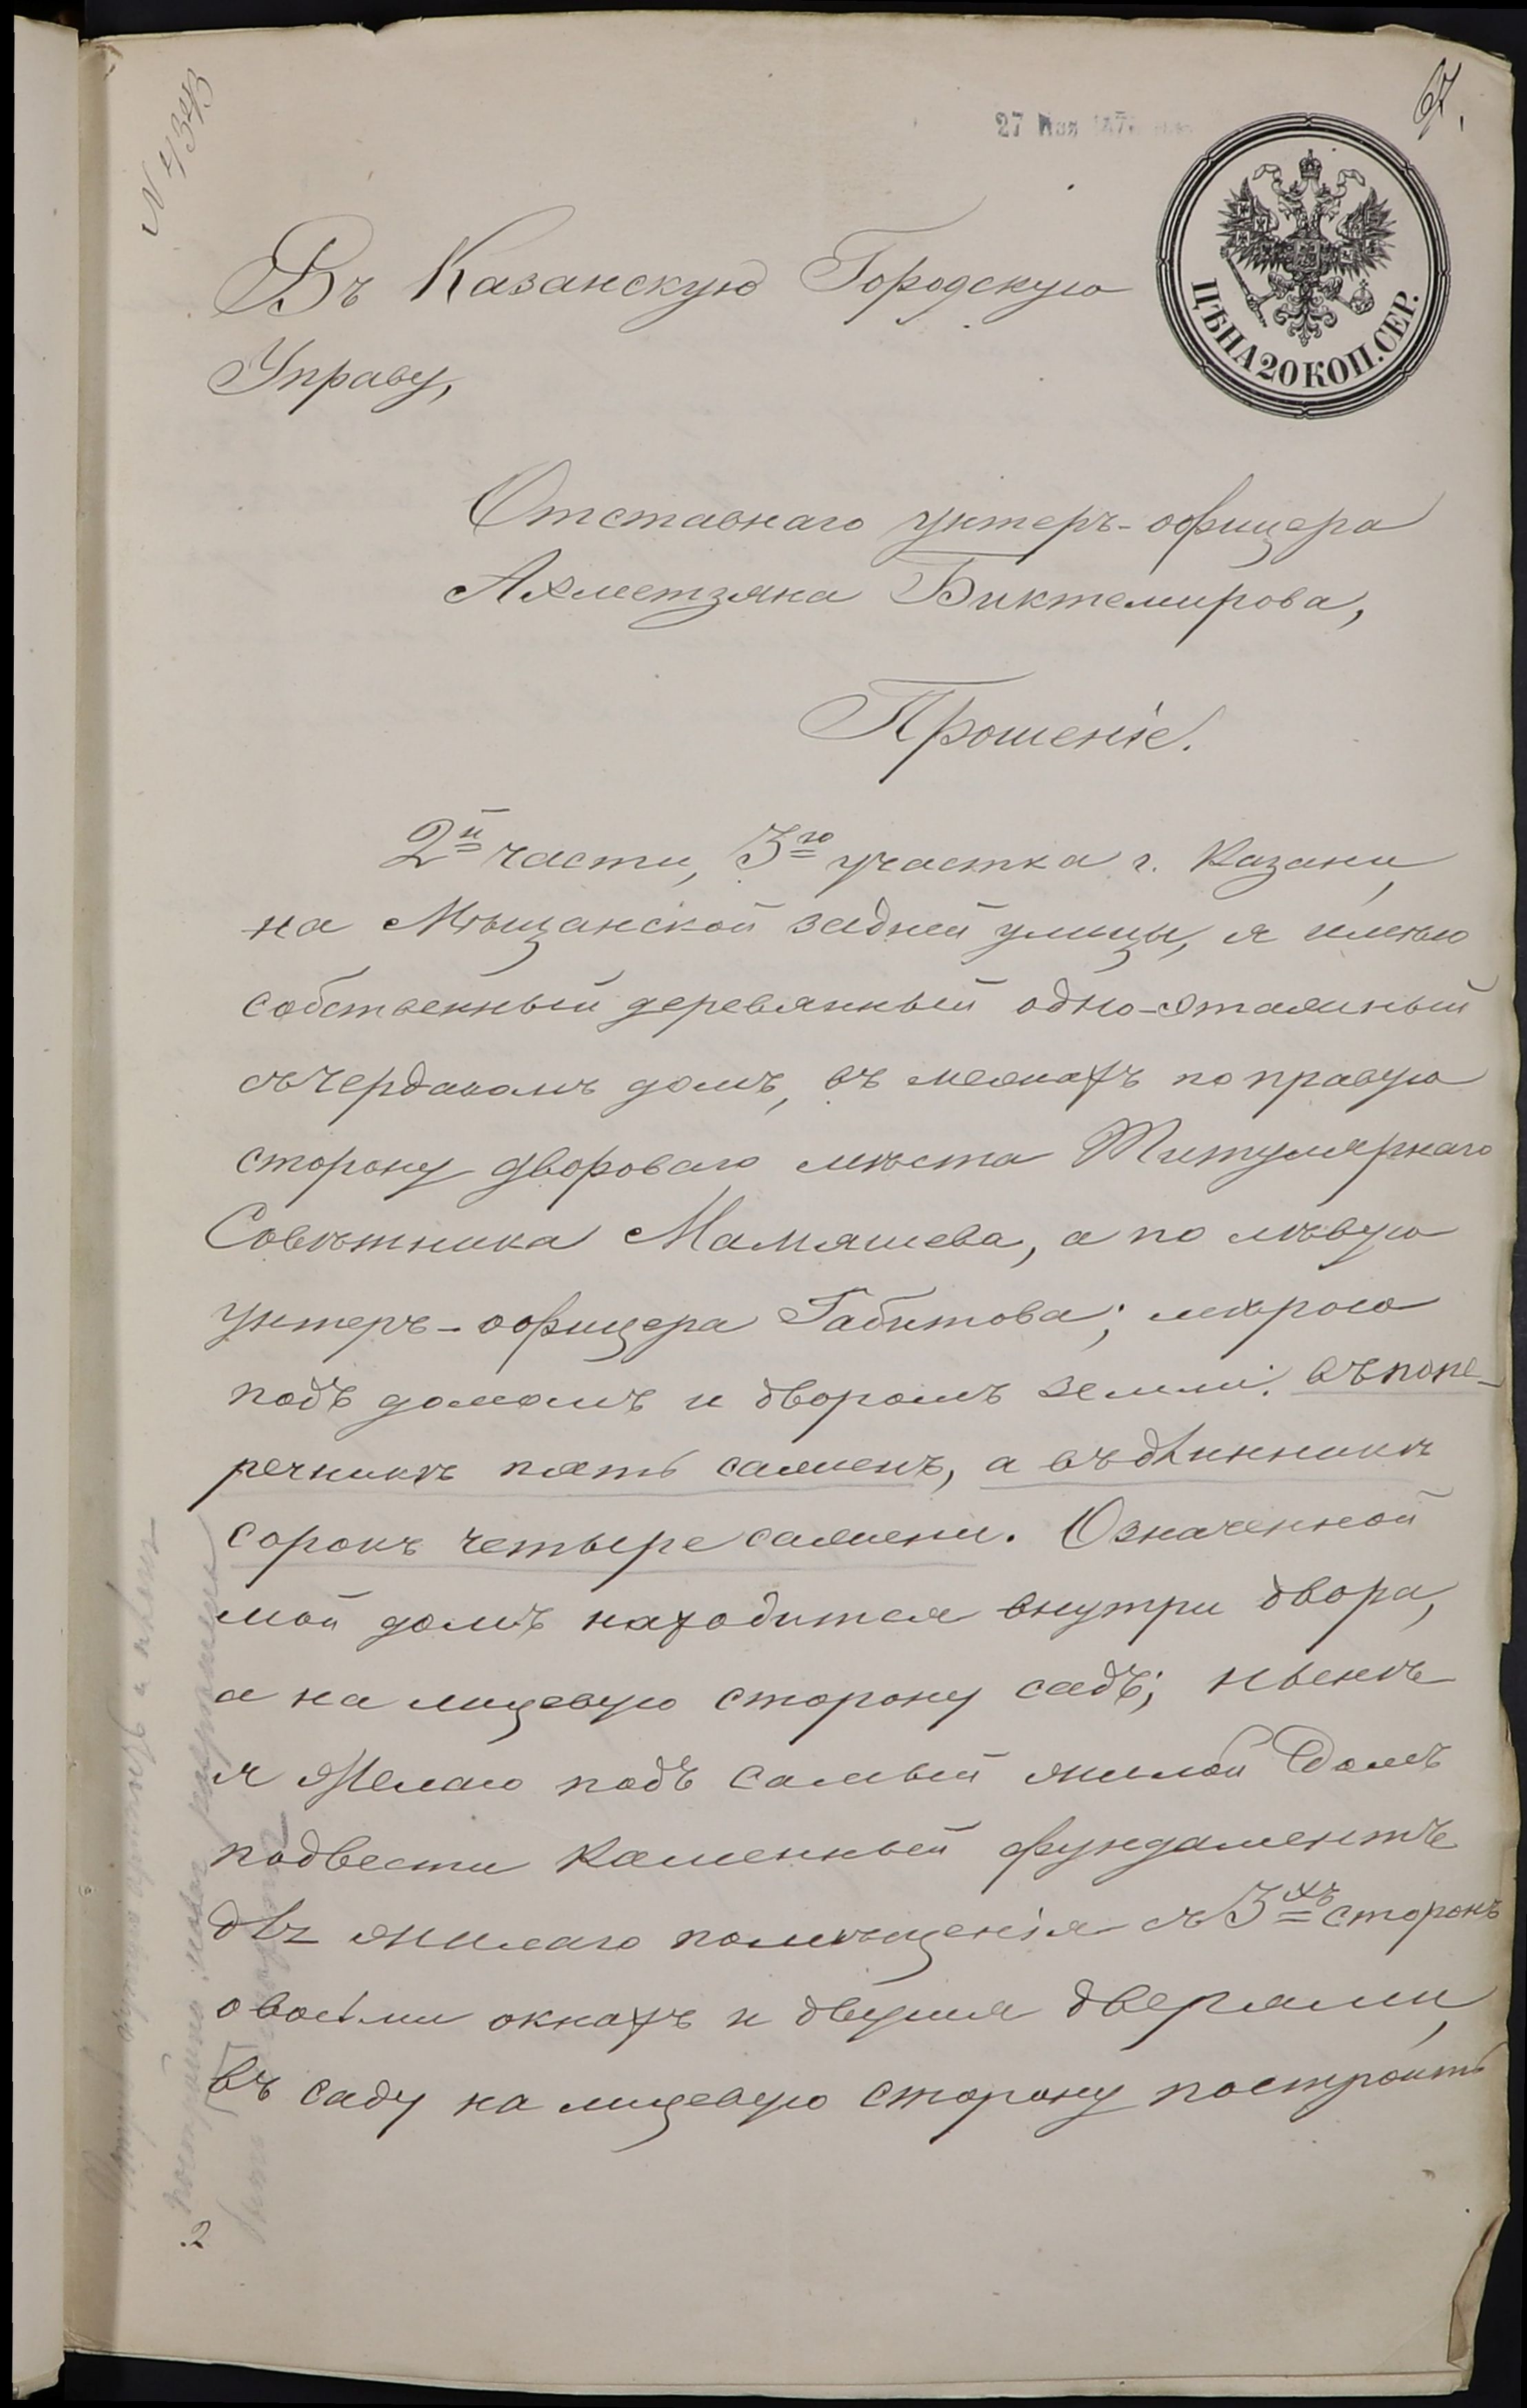 N 4343
27 Мая 187
67.
ЦѢНА 20 КОП. СЕР.
Въ Казанскую Городскую
Управу,
Отставнаго унтеръ-офицера
Ахметзяна Биктемирова,
Прошеніе.
2й части, 3го участка г. Казани,
на Мѣщанской задней улицы, я имѣю
собственный деревянный одно-этажный
съ чердакомъ домъ, въ межахъ по правую
сторону двороваго мѣста Титулярнаго
Совѣтника Мамяшева, а по лѣвую
унтеръ-офицера Габитова; мѣрою
подъ домомъ и дворомъ земли: въ попе-
речникѣ пять сажень, а въ длинникѣ
сорокъ четыре сажени. Означенной
мой домъ находится внутри двора,
а на лицевую сторону садъ; нынѣ
я желаю подъ самый жилой домъ
подвести каменный фундаментъ
для жилаго помѣщенія съ 3хъ сторонъ
о восьми окнахъ и двумя дверями,
въ саду на лицевую сторону построить
2